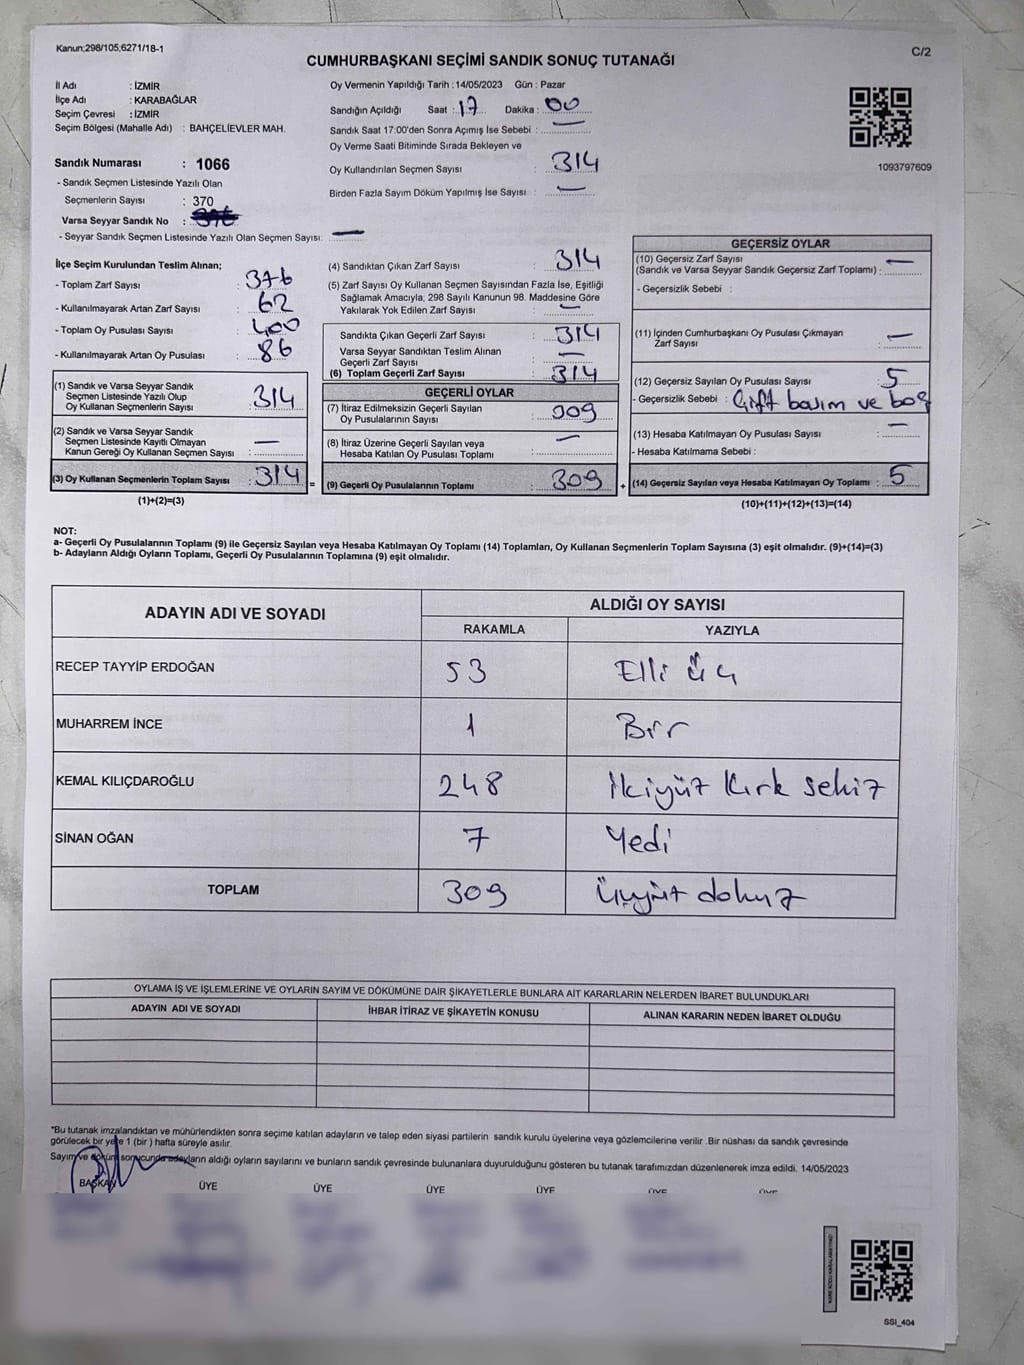 Kanun;298/105,6271/18-1
C/2
CUMHURBAŞKANI SEÇİMİ SANDIK SONUÇ TUTANAĞI
İl Adı : İZMİR
İlçe Adı : KARABAĞLAR
Seçim Çevresi : İZMİR
Seçim Bölgesi (Mahalle Adı) : BAHÇELİEVLER MAH.
Sandık Numarası : 1066
- Sandık Seçmen Listesinde Yazılı Olan
Seçmenlerin Sayısı : 370
Varsa Seyyar Sandık No :
- Seyyar Sandık Seçmen Listesinde Yazılı Olan Seçmen Sayısı: —
Oy Vermenin Yapıldığı Tarih : 14/05/2023 Gün : Pazar
Sandığın Açıldığı Saat : 17 Dakika : 00
Sandık Saat 17:00'den Sonra Açımış İse Sebebi : —
Oy Verme Saati Bitiminde Sırada Bekleyen ve
Oy Kullandırılan Seçmen Sayısı : 314
Birden Fazla Sayım Döküm Yapılmış İse Sayısı : —
1093797609
İlçe Seçim Kurulundan Teslim Alınan;
- Toplam Zarf Sayısı : 376
- Kullanılmayarak Artan Zarf Sayısı : 62
- Toplam Oy Pusulası Sayısı : 400
- Kullanılmayarak Artan Oy Pusulası : 86
(1) Sandık ve Varsa Seyyar Sandık
Seçmen Listesinde Yazılı Olup
Oy Kullanan Seçmenlerin Sayısı : 314
(2) Sandık ve Varsa Seyyar Sandık
Seçmen Listesinde Kayıtlı Olmayan
Kanun Gereği Oy Kullanan Seçmen Sayısı : —
(3) Oy Kullanan Seçmenlerin Toplam Sayısı : 314
(1)+(2)=(3)
(4) Sandıktan Çıkan Zarf Sayısı : 314
(5) Zarf Sayısı Oy Kullanan Seçmen Sayısından Fazla İse, Eşitliği
Sağlamak Amacıyla, 298 Sayılı Kanunun 98. Maddesine Göre
Yakılarak Yok Edilen Zarf Sayısı : —
Sandıkta Çıkan Geçerli Zarf Sayısı : 314
Varsa Seyyar Sandıktan Teslim Alınan
Geçerli Zarf Sayısı : —
(6) Toplam Geçerli Zarf Sayısı : 314
GEÇERLİ OYLAR
(7) İtiraz Edilmeksizin Geçerli Sayılan
Oy Pusulalarının Sayısı : 309
(8) İtiraz Üzerine Geçerli Sayılan veya
Hesaba Katılan Oy Pusulası Toplamı : —
= (9) Geçerli Oy Pusulalarının Toplamı : 309
GEÇERSİZ OYLAR
(10) Geçersiz Zarf Sayısı —
(Sandık ve Varsa Seyyar Sandık Geçersiz Zarf Toplamı) :
- Geçersizlik Sebebi :
(11) İçinden Cumhurbaşkanı Oy Pusulası Çıkmayan
Zarf Sayısı : —
(12) Geçersiz Sayılan Oy Pusulası Sayısı : 5
- Geçersizlik Sebebi : Çift basım ve boş
(13) Hesaba Katılmayan Oy Pusulası Sayısı : —
- Hesaba Katılmama Sebebi :
+ (14) Geçersiz Sayılan veya Hesaba Katılmayan Oy Toplamı : 5
(10)+(11)+(12)+(13)=(14)
NOT:
a- Geçerli Oy Pusulalarının Toplamı (9) ile Geçersiz Sayılan veya Hesaba Katılmayan Oy Toplamı (14) Toplamları, Oy Kullanan Seçmenlerin Toplam Sayısına (3) eşit olmalıdır. (9)+(14)=(3)
b- Adayların Aldığı Oyların Toplamı, Geçerli Oy Pusulalarının Toplamına (9) eşit olmalıdır.
ADAYIN ADI VE SOYADI
ALDIĞI OY SAYISI
RAKAMLA YAZIYLA
RECEP TAYYİP ERDOĞAN 53 Elli üç
MUHARREM İNCE 1 Bir
KEMAL KILIÇDAROĞLU 248 İkiyüz Kırk sekiz
SİNAN OĞAN 7 Yedi
TOPLAM 309 Üçyüz dokuz
OYLAMA İŞ VE İŞLEMLERİNE VE OYLARIN SAYIM VE DÖKÜMÜNE DAİR ŞİKAYETLERLE BUNLARA AİT KARARLARIN NELERDEN İBARET BULUNDUKLARI
ADAYIN ADI VE SOYADI İHBAR İTİRAZ VE ŞİKAYETİN KONUSU ALINAN KARARIN NEDEN İBARET OLDUĞU
*Bu tutanak imzalandıktan ve mühürlendikten sonra seçime katılan adayların ve talep eden siyasi partilerin sandık kurulu üyelerine veya gözlemcilerine verilir .Bir nüshası da sandık çevresinde
görülecek bir yere 1 (bir ) hafta süreyle asılır.
Sayım ve döküm sonucunda adayların aldığı oyların sayılarını ve bunların sandık çevresinde bulunanlara duyurulduğunu gösteren bu tutanak tarafımızdan düzenlenerek imza edildi. 14/05/2023
BAŞKAN ÜYE ÜYE ÜYE ÜYE ÜYE ÜYE
SSI_404